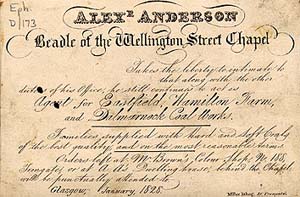 Eph.
D/173
ALEXR. ANDERSON
Beadle of the Wellington Street Chapel
Takes the liberty to intimate to
that along with the other
duties of his Office, he still continues to act as
Agent for Eastfield, Hamilton Farm,
and Dalmarnock Coal Works.
Families supplied with hard and soft Coals
of the best quality, and on the most reasonable terms.
Orders left at Mr. Brown's Colour Shop No. 188,
Trongate, or at A. A's Dwelling house, behind the Chapel
will be punctually attended to.
Glasgow, January, 1828.